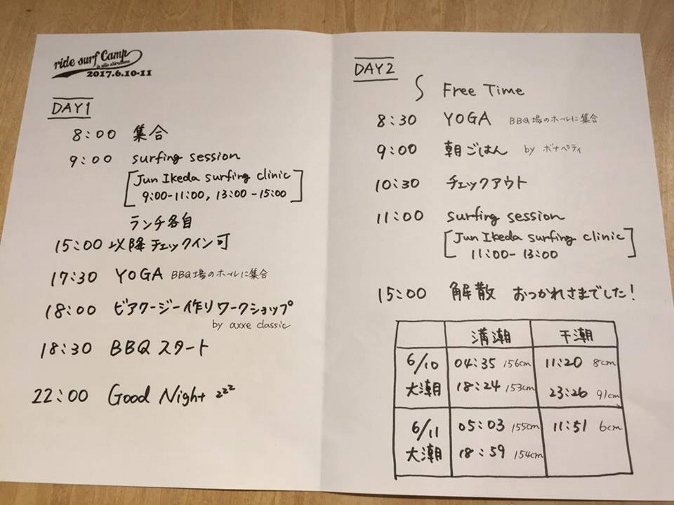 ride surf Camp
2017.6.10-11
DAY1
8:00 集合
9:00 surfing session
Jun Ikeda surfing clinic
9:00-11:00, 13:00-15:00
ランチ各自
15:00 以降チェックイン可
17:30 YOGA BBQ場のホールに集合
18:00 ビアクージー作りワークショップ
by axxe classic
18:30 BBQ スタート
22:00 Good Night zzz
DAY2
Free Time
8:30 YOGA BBQ場のホールに集合
9:00 朝ごはん by ボナペティ
10:30 チェックアウト
11:00 surfing session
Jun Ikeda surfing clinic
11:00-13:00
15:00 解散 おつかれさまでした!
満潮 干潮
6/10 04:35 156cm 11:20 8cm
大潮 18:24 153cm 23:26 91cm
6/11 05:03 155cm 11:51 6cm
大潮 18:59 154cm